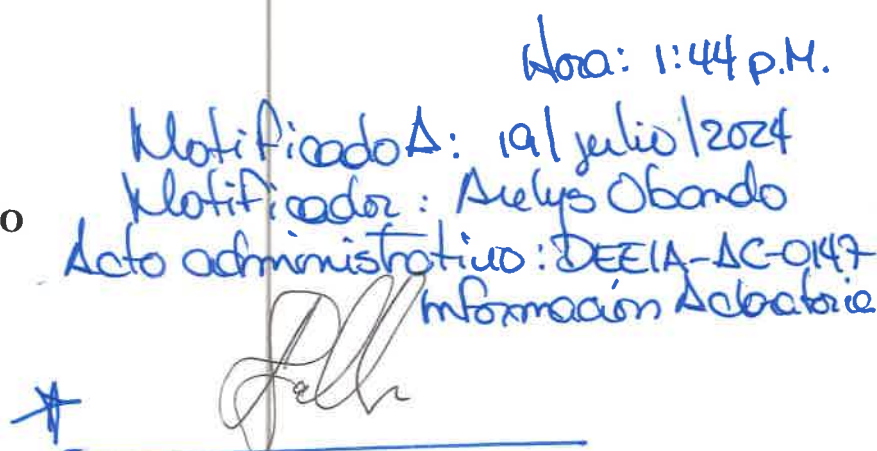 Hora: 1:44 p.M.
Notificado A: 19/julio/2024
Notificador: Arelys Obando
o
Acto administrativo: DEEIA-AC-0147
Información Aclaratoria